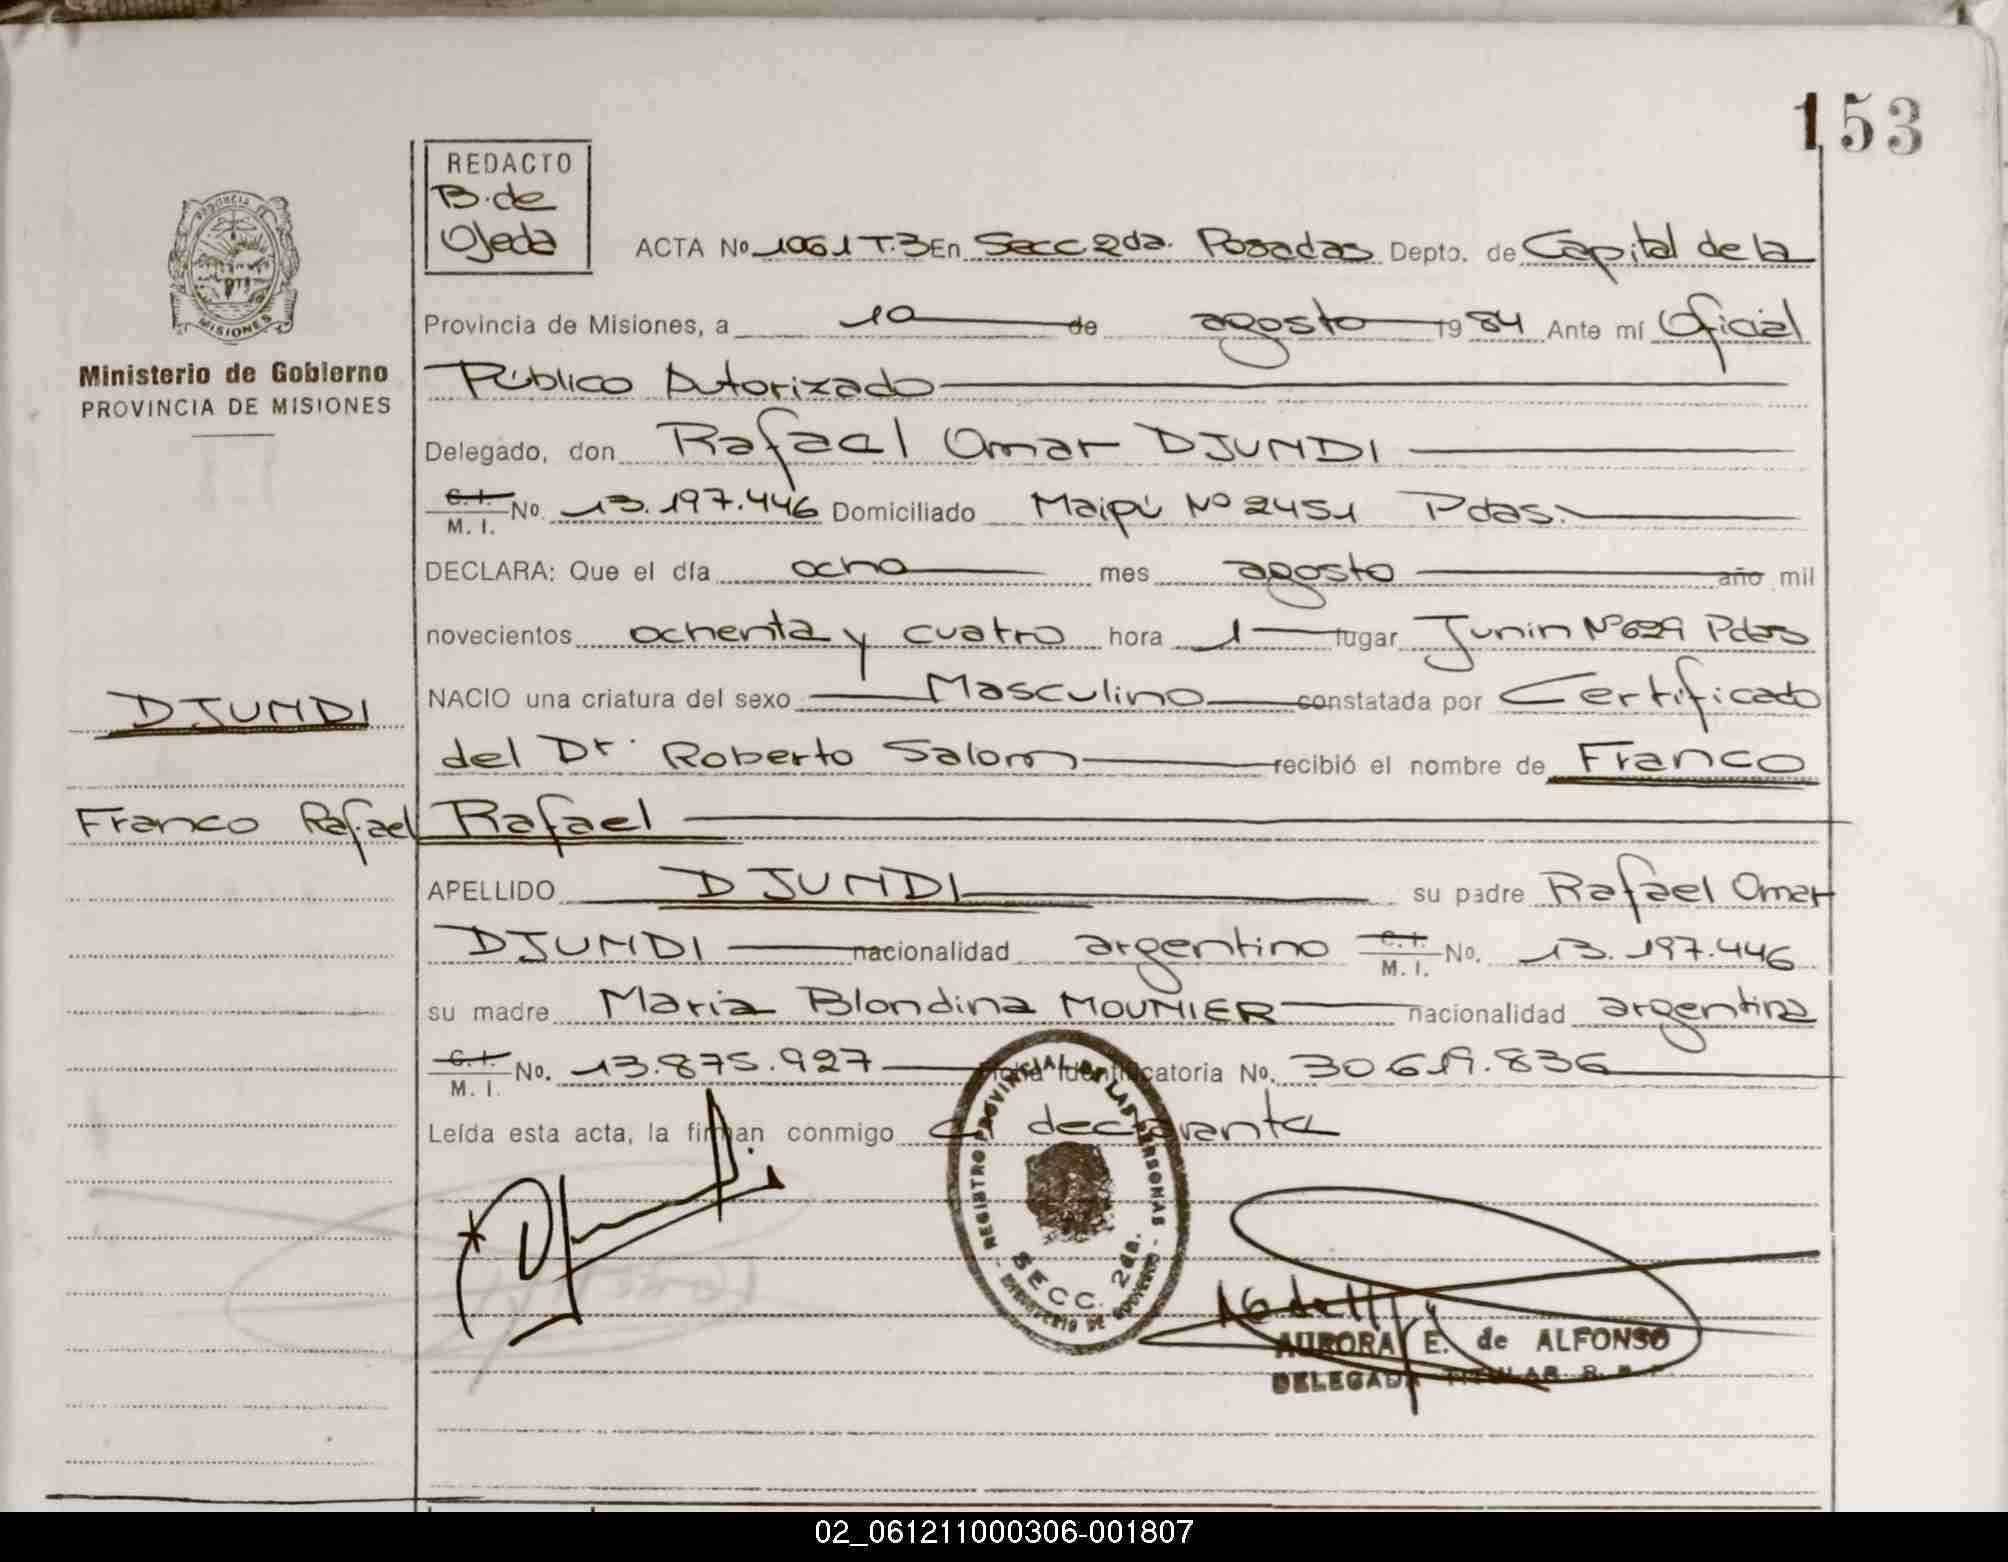 153
REDACTO
B. de
Ojeda
PROVINCIA DE
MISIONES
Ministerio de Gobierno
PROVINCIA DE MISIONES
ACTA Nº 1061 T.3 En Secc 2da. Posadas Depto. de Capital de la
Provincia de Misiones, a 10 de agosto 1984 Ante mí Oficial
Público Autorizado
Delegado, don Rafael Omar DJUNDI
C.I. M. I. No. 13.197.446 Domiciliado Maipú Nº 2451 Pdas.
DECLARA: Que el día ocho mes agosto año mil
novecientos ochenta y cuatro hora 1 lugar Junin Nº 629 Pdas
NACIO una criatura del sexo Masculino constatada por Certificado
del Dr. Roberto Salom recibió el nombre de Franco
Rafael
DJUNDI
Franco Rafael
APELLIDO DJUNDI su padre Rafael Omar
DJUNDI nacionalidad argentino C.I. M. I. No. 13.197.446
su madre Maria Blondina MOUNIER nacionalidad argentina
C.I. M. I. No. 13.875.927 Ficha Identificatoria No. 30.619.836
Leída esta acta, la firman conmigo declarante
REGISTRO PROVINCIAL DE LAS PERSONAS
SECC. 2da.
MINISTERIO DE GOBIERNO
AURORA E. de ALFONSO
DELEGADA TITULAR R. P. P.
02_061211000306-001807